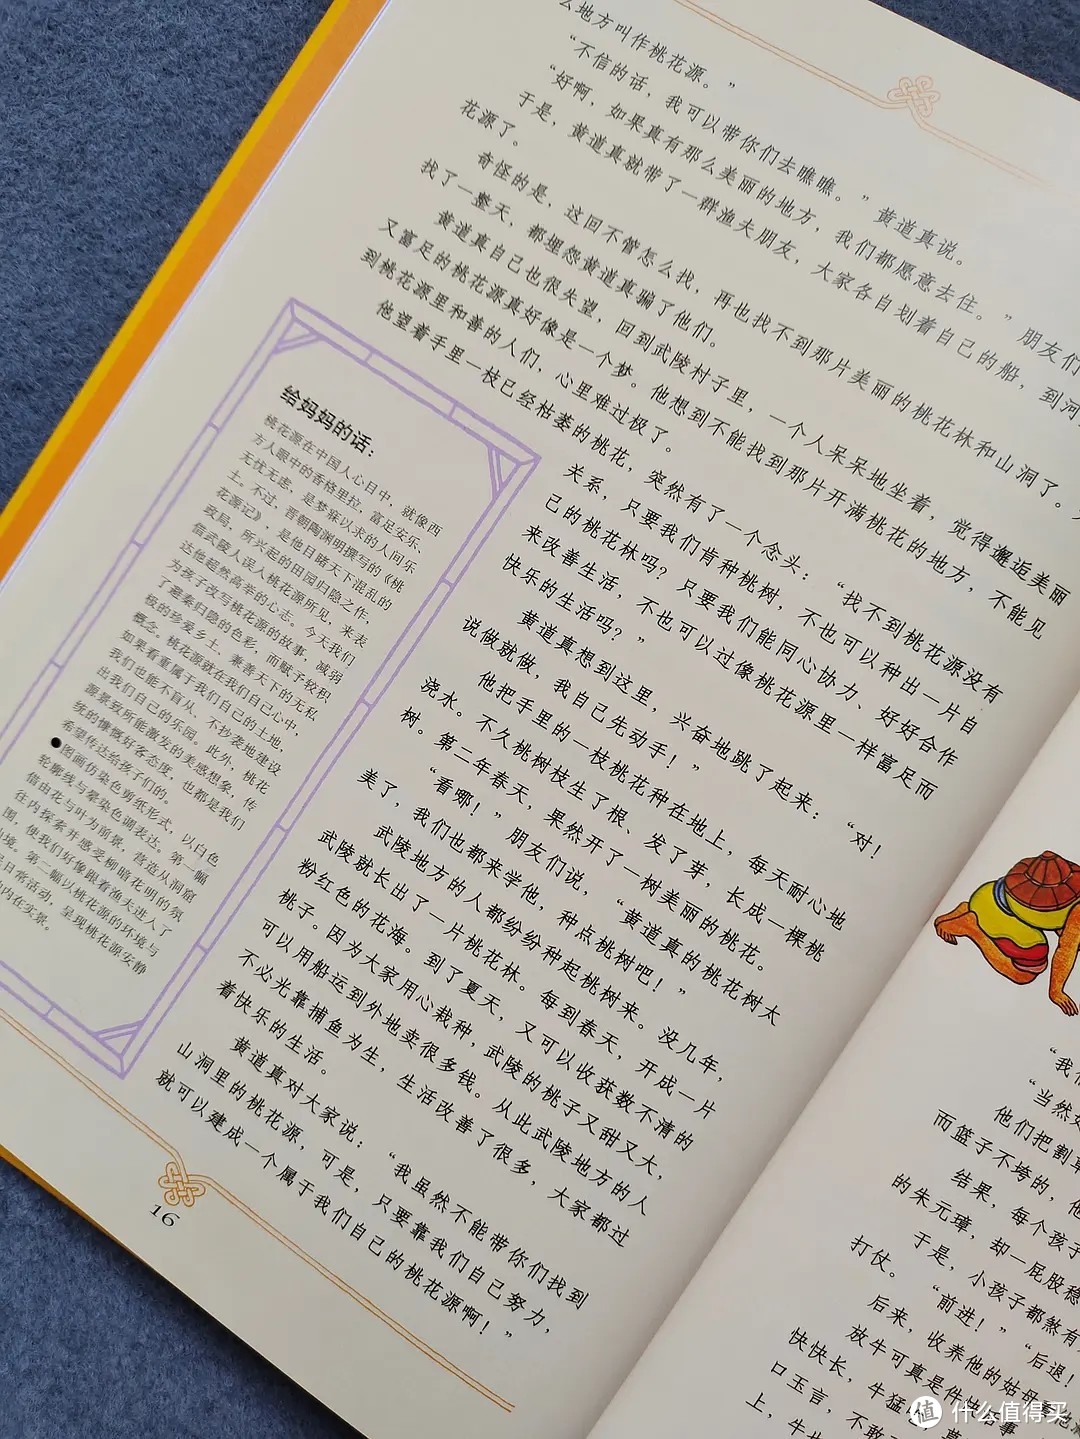 么地方叫作桃花源。”
“不信的话，我可以带你们去瞧瞧。”黄道真说。
“好啊，如果真有那么美丽的地方，我们都愿意去住。”朋友们
于是，黄道真就带了一群渔夫朋友，大家各自划着自己的船，到河
花源了。
奇怪的是，这回不管怎么找，再也找不到那片美丽的桃花林和山洞了。
找了一整天，都埋怨黄道真骗了他们。
黄道真自己也很失望，回到武陵村子里，一个人呆呆地坐着，觉得邂逅美丽
又富足的桃花源真好像是一个梦。他想到不能找到那片开满桃花的地方，不能见
到桃花源里和善的人们，心里难过极了。
他望着手里一枝已经枯萎的桃花，突然有了一个念头：“找不到桃花源没有
关系，只要我们肯种桃树，不也可以种出一片自
己的桃花林吗？只要我们能同心协力、好好合作
来改善生活，不也可以过像桃花源里一样富足而
快乐的生活吗？”
黄道真想到这里，兴奋地跳了起来：“对！
说做就做，我自己先动手！”
他把手里的一枝桃花种在地上，每天耐心地
浇水。不久桃树枝生了根、发了芽，长成一棵桃
树。第二年春天，果然开了一树美丽的桃花。
“看哪！”朋友们说，“黄道真的桃花树太
美了，我们也都来学他，种点桃树吧！”
武陵地方的人都纷纷种起桃树来。没几年，
武陵就长出了一片桃花林。每到春天，开成一片
粉红色的花海。到了夏天，又可以收获数不清的
桃子。因为大家用心栽种，武陵的桃子又甜又大，
可以用船运到外地卖很多钱。从此武陵地方的人
不必光靠捕鱼为生，生活改善了很多，大家都过
着快乐的生活。
黄道真对大家说：“我虽然不能带你们找到
山洞里的桃花源，可是，只要靠我们自己努力，
就可以建成一个属于我们自己的桃花源啊！”
给妈妈的话：
桃花源在中国人心目中，就像西
方人眼中的香格里拉，富足安乐、
无忧无虑，是梦寐以求的人间乐
土。不过，晋朝陶渊明撰写的《桃
花源记》，是他目睹天下混乱的
政局，所兴起的田园归隐之作，
借武陵人误入桃花源所见，来表
达他超然高举的心志。今天我们
为孩子改写桃花源的故事，减弱
了避秦归隐的色彩，而赋予较积
极的珍爱乡土、兼善天下的无私
概念。桃花源就在我们自己心中，
如果看重属于我们自己的土地，
我们也能不盲从、不抄袭地建设
出我们自己的乐园。此外，桃花
源景致所能激发的美感想象、传
统的慷慨好客态度，也都是我们
希望传达给孩子们的。
●图画仿染色剪纸形式，以白色
轮廓线与晕染色调表达。第一幅
借由花与叶为前景，营造从洞窟
往内探索并感受柳暗花明的氛
围，使我们好像跟着渔夫进入了
境。第二幅以桃花源的环境与
日常活动，呈现桃花源安静
内在实景。
16
“我们
“当然好
他们把割草
而篮子不垮的，他
结果，每个孩子
的朱元璋，却一屁股稳
于是，小孩子都煞有
打仗。
“前进！”“后退！
后来，收养他的姑母
放牛可真是件快活事
快快长，牛猛
口玉言，不敢
上，牛也
值 什么值得买